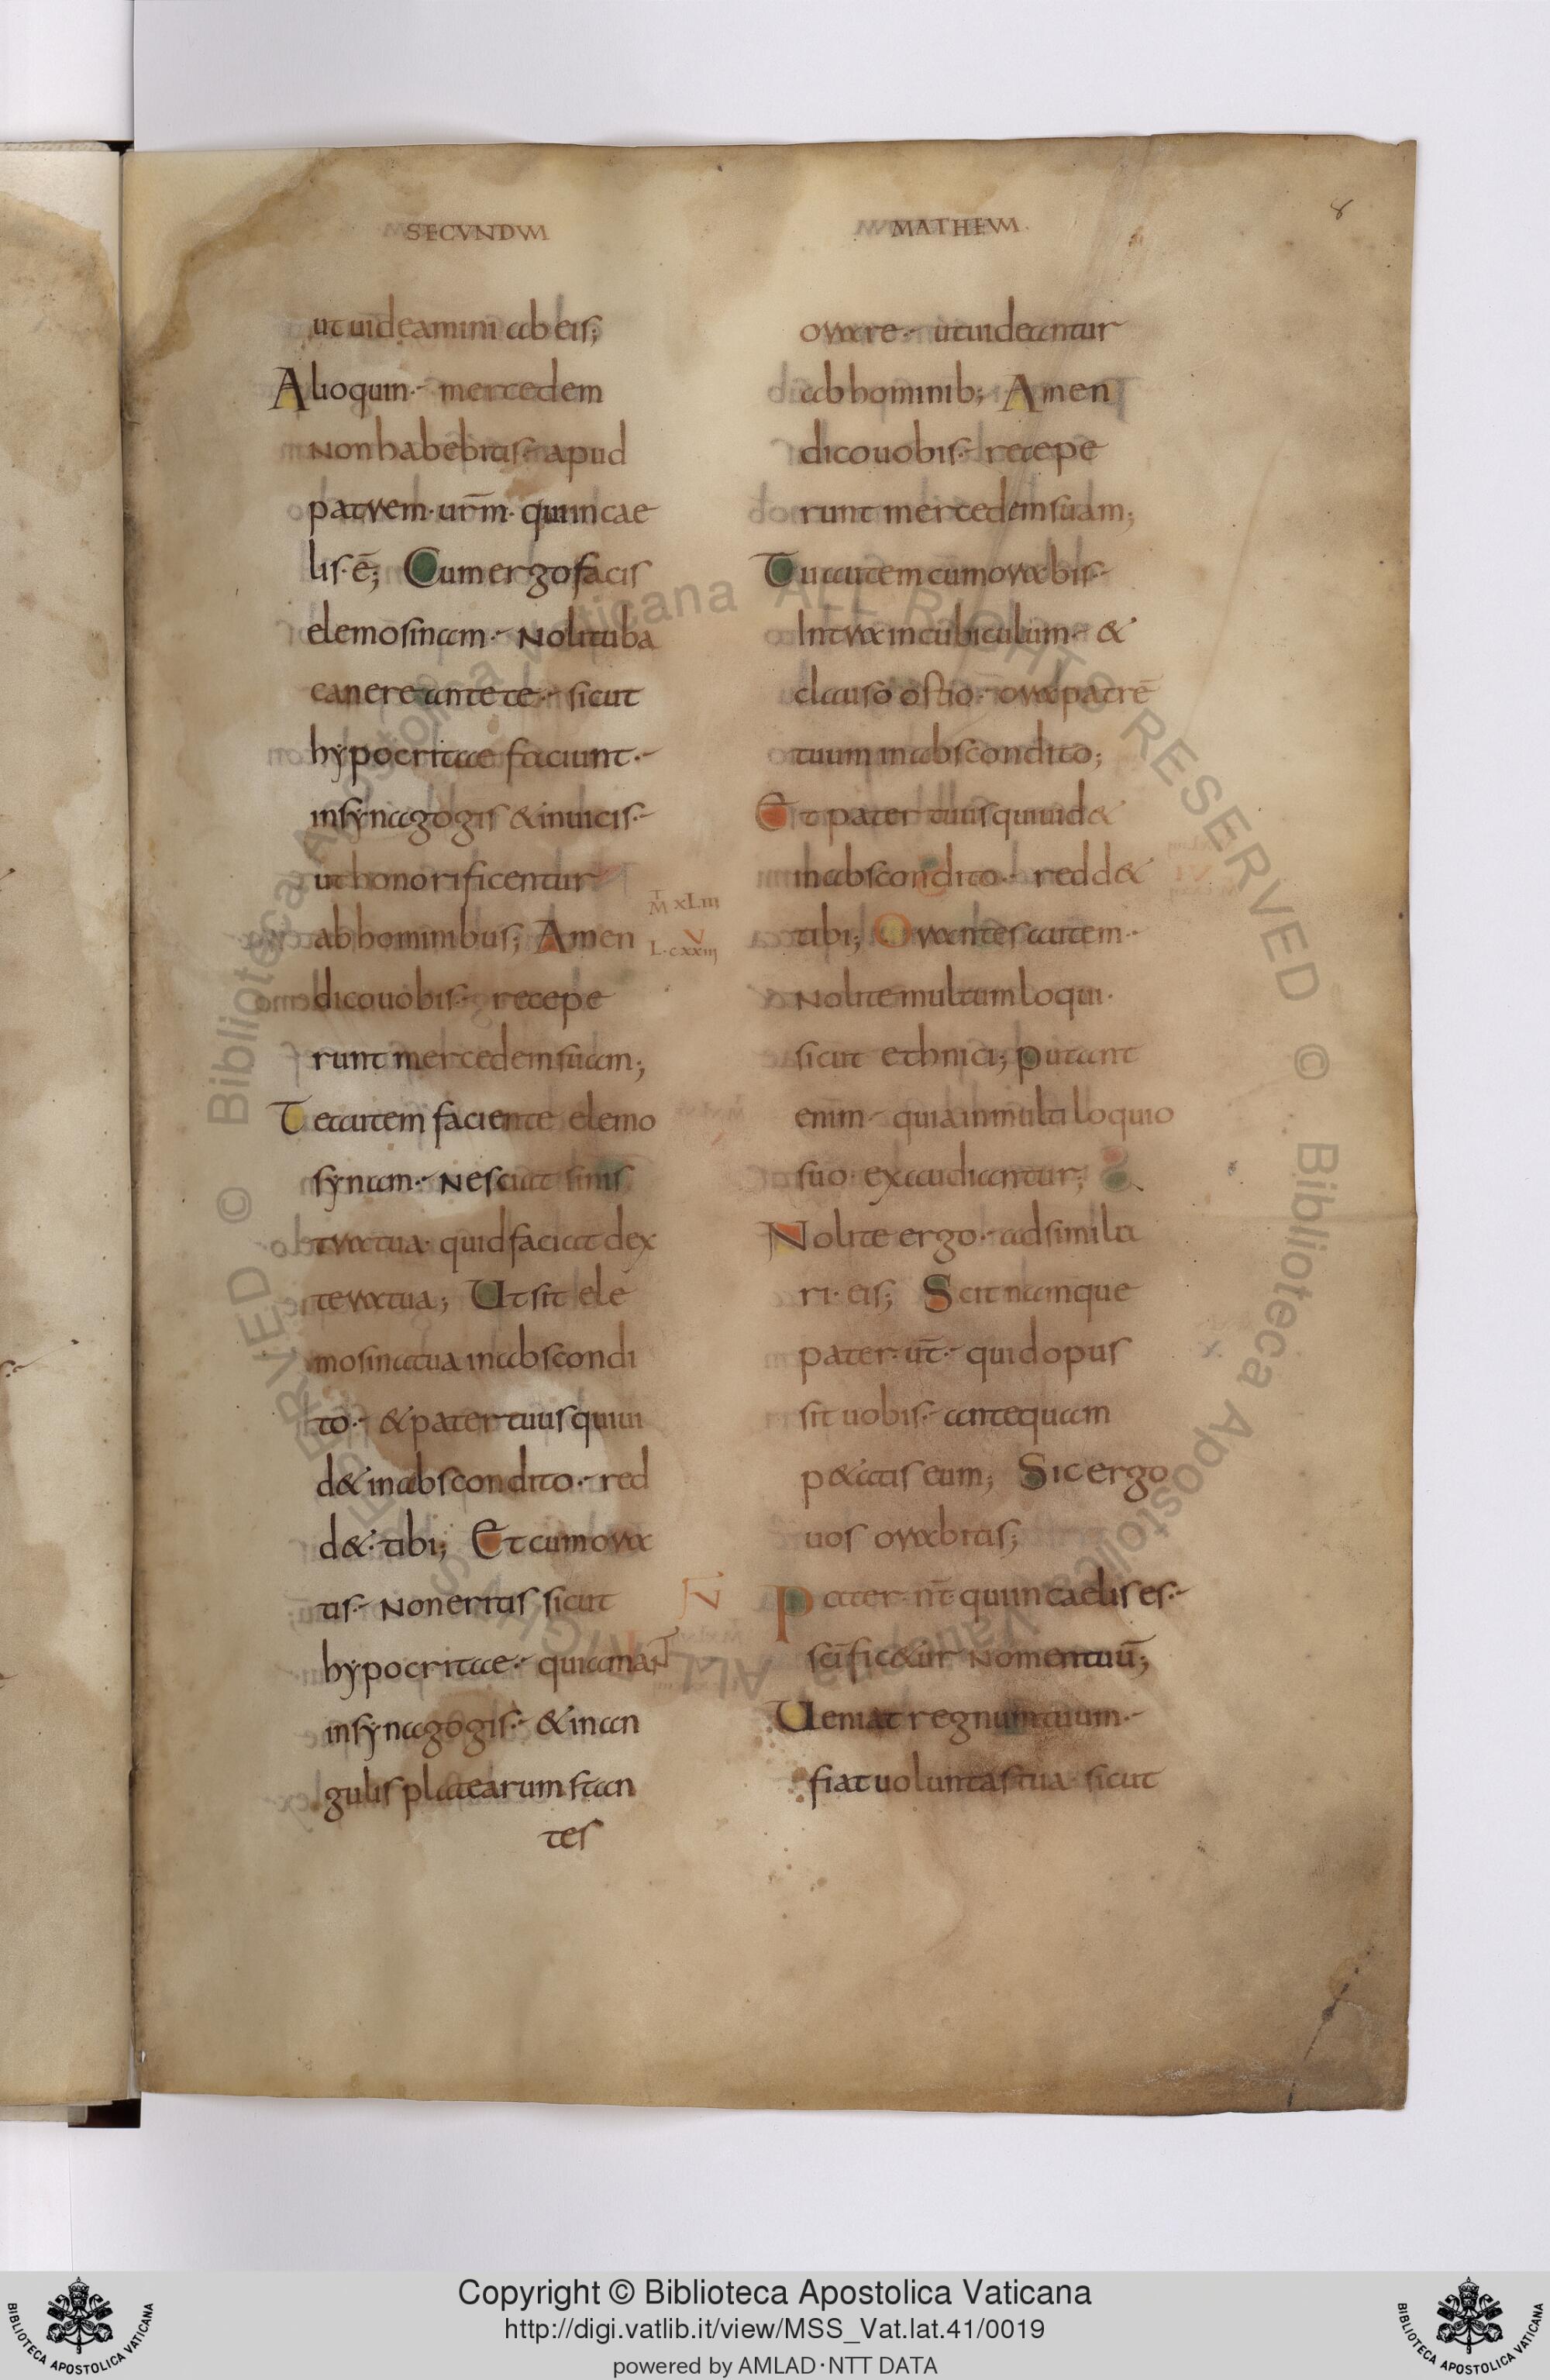 SECVNDVM
ut uideamini ab eis;
Alioquin·- mercedem
Non habebitis·- apud
patrem· ur̄m· qui in cae
lis· ē; Cum ergo facis
elemosinam·- Noli tuba
canere ante te·- sicut
hypocritae faciunt·-
in synagogis & in uicis·-
ut honorificentur
ab hominibus; Amen
dico uobis·- recepe
runt mercedem suam;
Te autem faciente elemo
synam·- Nesciat sinis
tra tua· quid faciat dex
tera tua; Ut sit ele
mosina tua in abscondi
to·- & pater tuus qui ui
d& in abscondito·- red
d&· tibi; Et cum ora
tis·- Non eritis sicut
hypocritae·- qui amaNT
in synagogis·- & in an
gulis platearum stan
tes
M xLiii
V
L·cxxiii
MATHEVM·
8
orare·- ut uideantur
ab hominib; Amen
dico uobis·- recepe
runt mercedem suam;
Tu autem cum orabis·-
Intra in cubiculum·- &
clauso ostio·- ora patrē
tuum in abscondito;
Et pater tuus qui uid&
in abscondito·- redd&
tibi; Orantes autem·-
Nolite multum loqui·
sicut ethnici; putant
enim·- quia in multiloquio
suo· exaudiantur;
Nolite ergo·- adsimila
ri· eis; Scit namque
pater· ur̄·- quid opus
sit uobis·- antequam
p&atis eum; Sic ergo
uos orabitis;
V
Pater· nr̄· qui in caelis es·-
scīfic&ur Nomen tuū;
Ueniat regnum tuum·-
fiat uoluntas tua· sicut
© Biblioteca Apostolica Vaticana ALL RIGHTS RESERVED
Copyright © Biblioteca Apostolica Vaticana
http://digi.vatlib.it/view/MSS_Vat.lat.41/0019
powered by AMLAD·NTT DATA
BIBLIOTECA APOSTOLICA VATICANA
BIBLIOTECA APOSTOLICA VATICANA